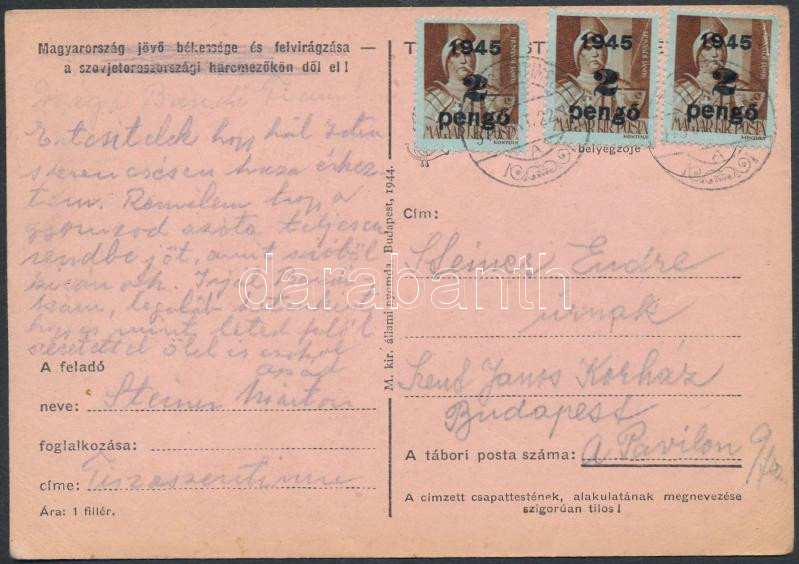 Magyarország jövő békessége és felvirágzása —
a szovjetoroszországi harcmezőkön dől el!
Drága Bandi Fiam!
Értesitelek hogy hál Isten
szerencsésen haza érkez
tem. Remélem hogy a
gyomrod azóta teljesen
rendbe jöt, amit szivből
kivánok. Irjál
hogy mint
szerető ölel és csokol
apád
A feladó
neve: Steiner Márton
foglalkozása:
címe: Tiszaszentimre
Ára: 1 fillér.
M. kir. állami nyomda, Budapest, 1944.
1945
2
pengő
MAGYAR KIR. POSTA
1945
2
pengő
MAGYAR KIR. POSTA
1945
2
pengő
MAGYAR KIR. POSTA
bélyegzője
Cím:
Steiner Endre
úrnak
Szent János Korház
Budapest
A tábori posta száma: A Pavilon 9/
A címzett csapattestének, alakulatának megnevezése
szigorúan tilos!
darabanth